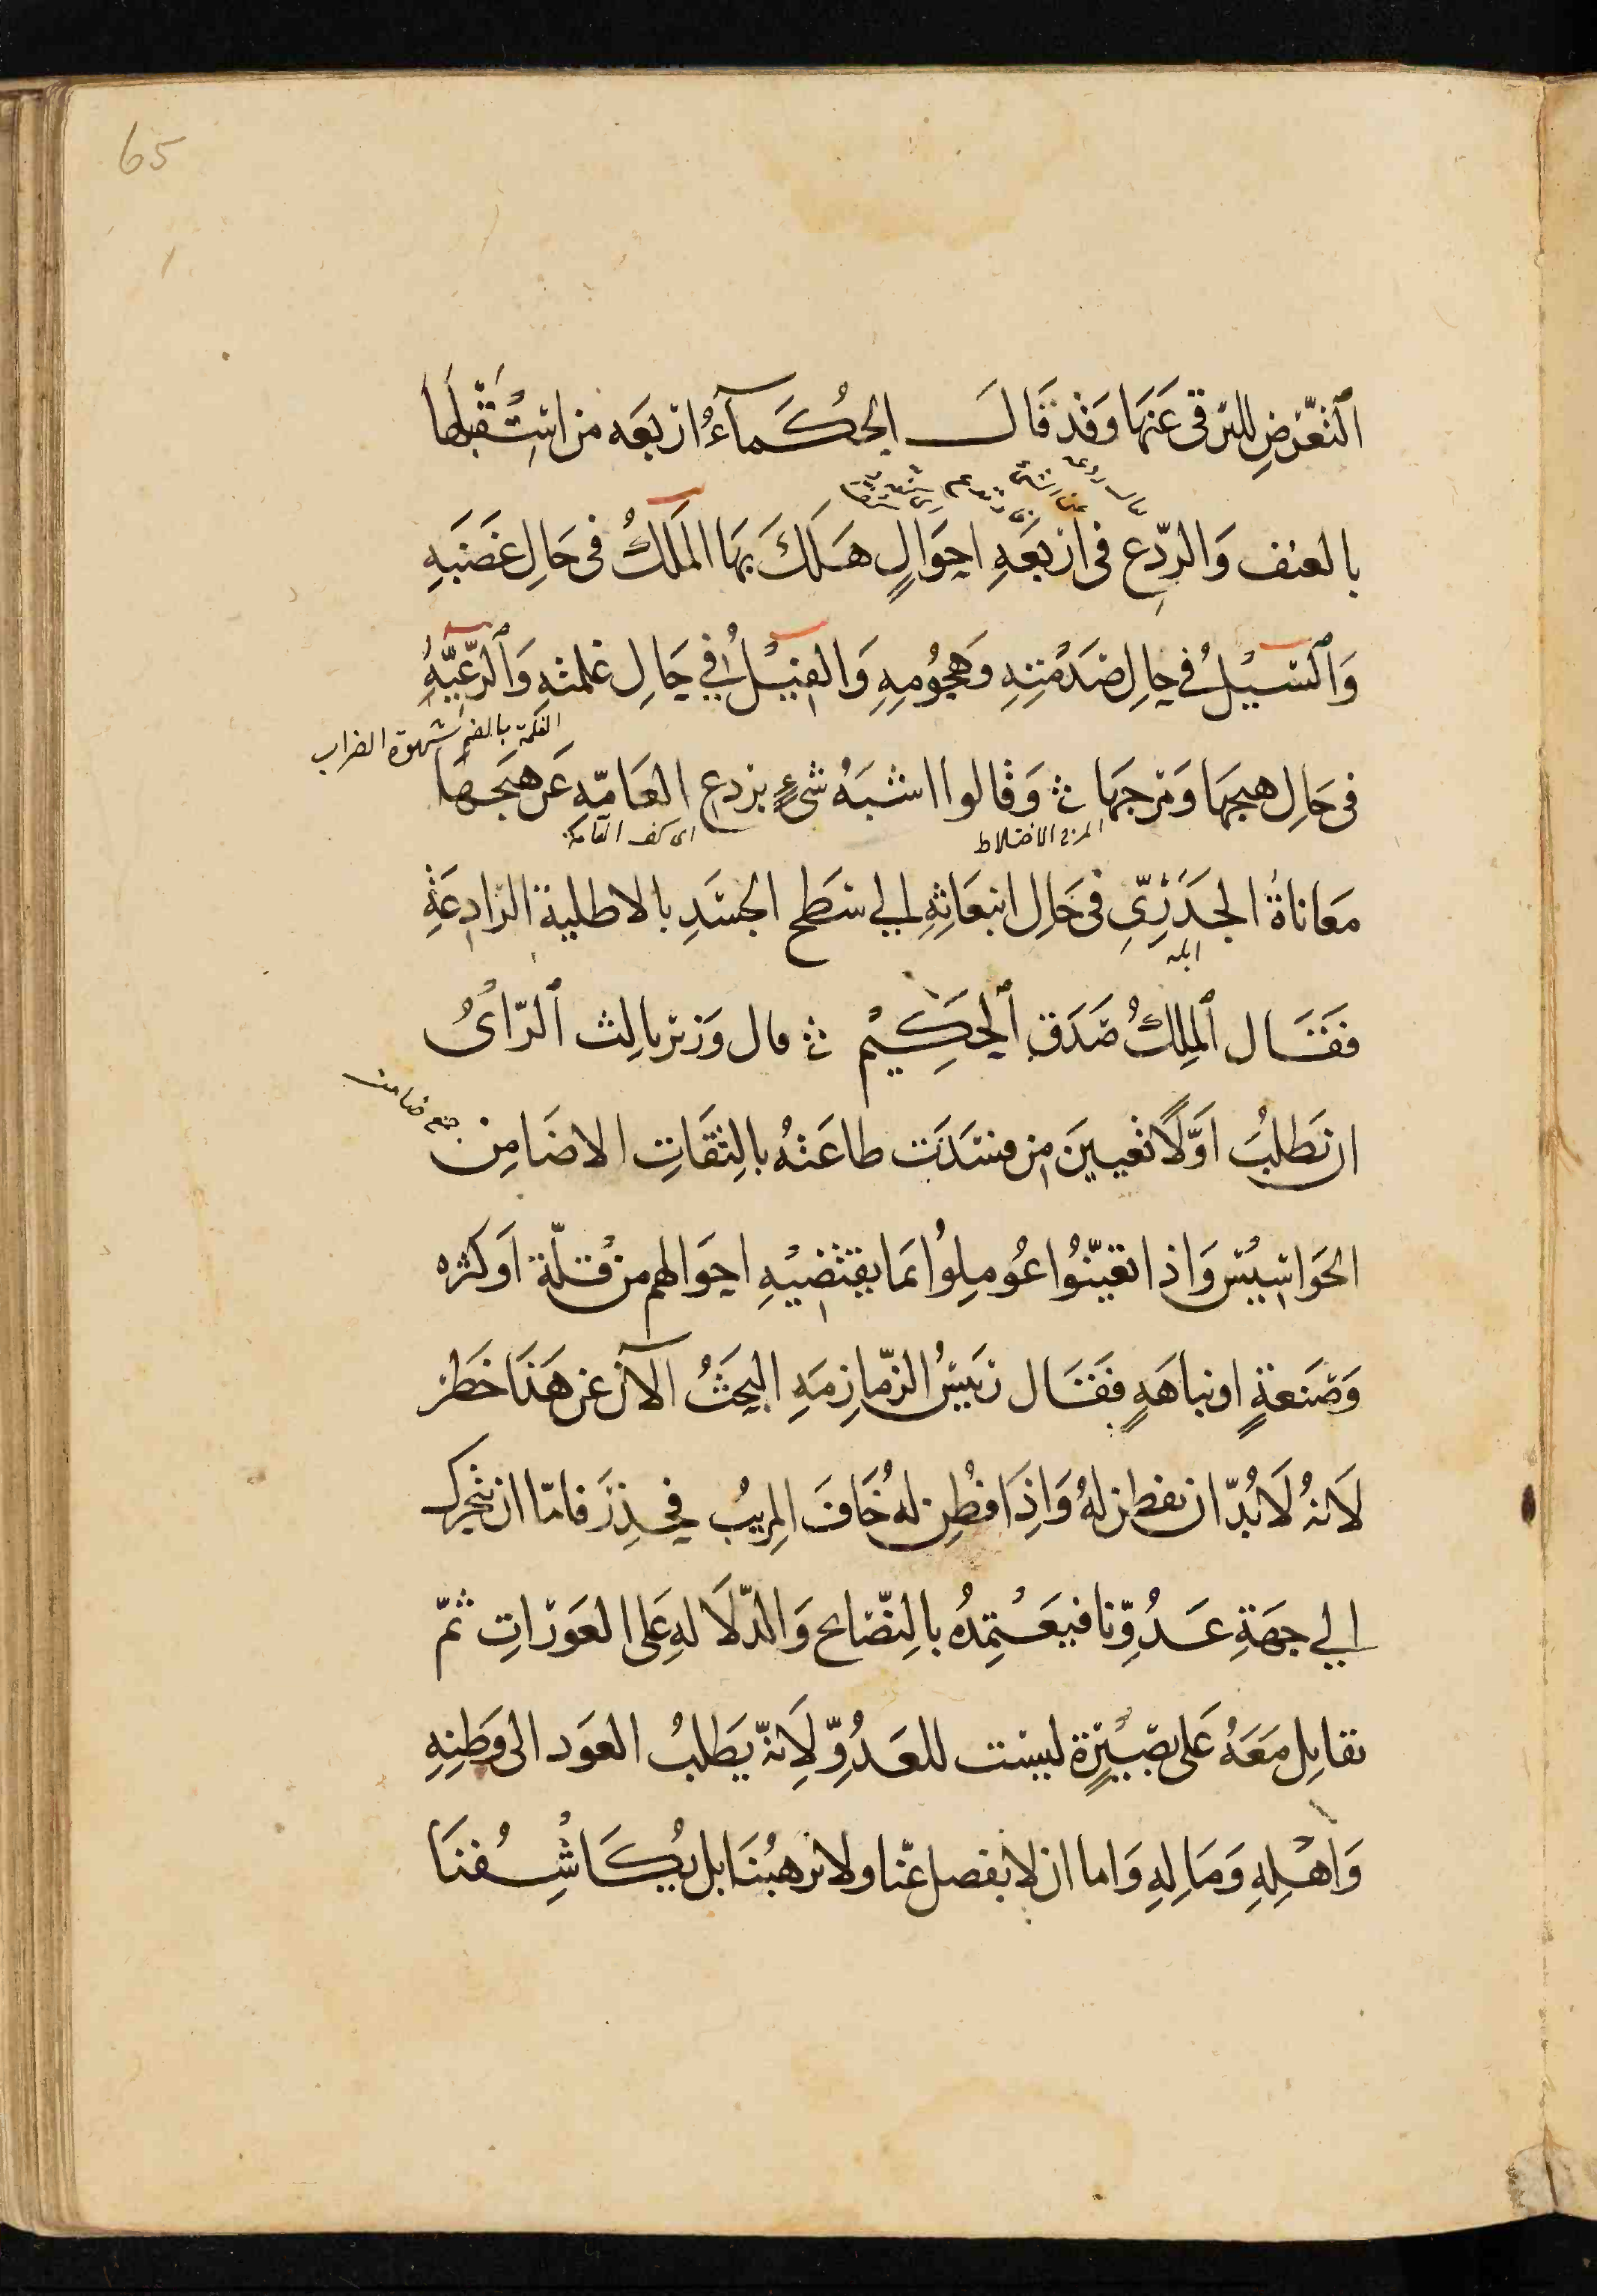 65
التعرّض للترقى عنها وَقد قَالَ الحُكَمآءُ اربَعَه من استقبلها
بالعنف وَالردع فى اربَعَةِ احوَالٍ هَلَكَ بهَا المَلكُ فى حَالِ غضَبَهِ
وَالسَّيْلُ في حالِ صَدْمتِهِ وهجُومِهِ وَالفِيْلُ في حَالِ غلمته وَالرّعيّهُ
الغلمة بالضم شهوة الضراب
فى حَالِ هيجهَا وَمَرجهَا وَقالوا اشبَهُ شىءٍ بردع العَامّه عَن هيَجهَا
المرج الاختلاط
اى كف العامة
مَعاناةُ الجدَرِىّ فى حَالِ انبعَاثِهِ الي سَطح الجسَدِ بالاطلية الرّادِعَةِ
فَقَال المَلِكُ صَدَقَ الحَكِيْم قال وَزير ثالث الرّأىُ
ان نَطلبُ اوّلًا تعيينَ من فسَدَت طاعَتهُ بالثقَاتِ الاضَامِن
الحَواسِيْس وَاذا تعيّنُوا عُومِلوُا بمَا يقتضيْهِ احوَالهم من قلّة اوَ كثره
وَصَنعةٍ او نباهَةٍ فقَال رَئيسُ الزّمازِمَهِ البحَثُ الآن عن هَذَا خَطر
لاَنهُ لَا بُدّ ان يفطن لهُ وَاِذَا فطِن لهُ خَافَ المريبُ فحذِرَ فامّا ان يتحرك
الي جهَةِ عَدُوّنا فيعْتمِدُه بالنصّايح وَالدّلَالهِ عَلى العَورَاتِ ثمّ
نقابِل مَعَهُ عَلى بَصيْرَةٍ ليست للعَدُوِّ لِاَنّهُ يَطلبُ العَود الى وَطنِهِ
وَاهْلِهِ وَمَالِهِ وَاما ان لا يفصل عنّا ولا يرهبُنَا بل يُكَاشِفنَا